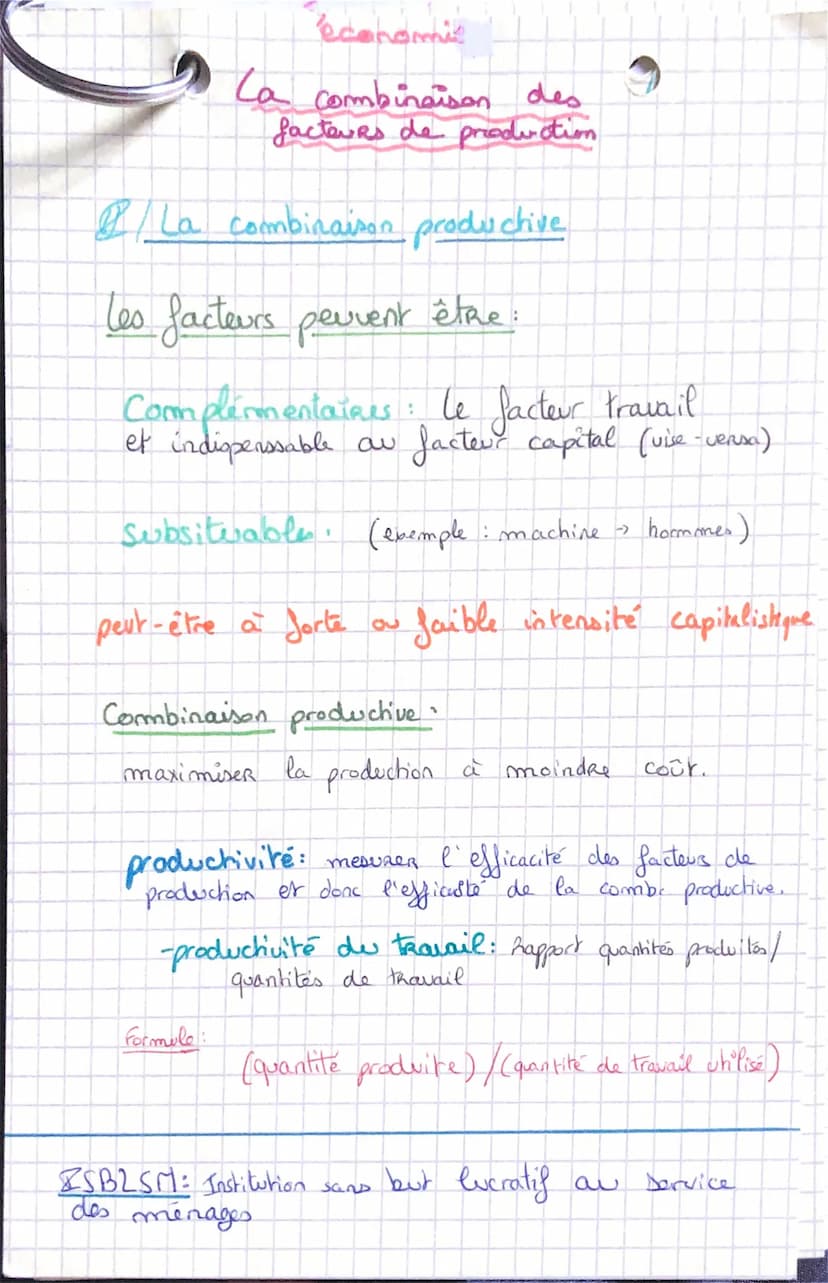 économie
La combinaison des
facteurs de production
I/ La combinaison productive
Les facteurs peuvent être :
Complémentaires : Le facteur travail
et indiperssable au facteur capital (vise-versa)
Subsituables : (exemple : machine → hommes)
peut-être à forte ou faible intensité capitalistique
Combinaison productive :
maximiser la production à moindre coût.
productivité : mesurer l'efficacité des facteurs de
production et donc l'efficasté de la comb. productive.
-productivité du travail : Rapport quantités produites/
quantités de travail
Formule :
(quantité produite) / (quantité de travail utilisé)
ISBLSM : Institution sans but lucratif au service
des ménages